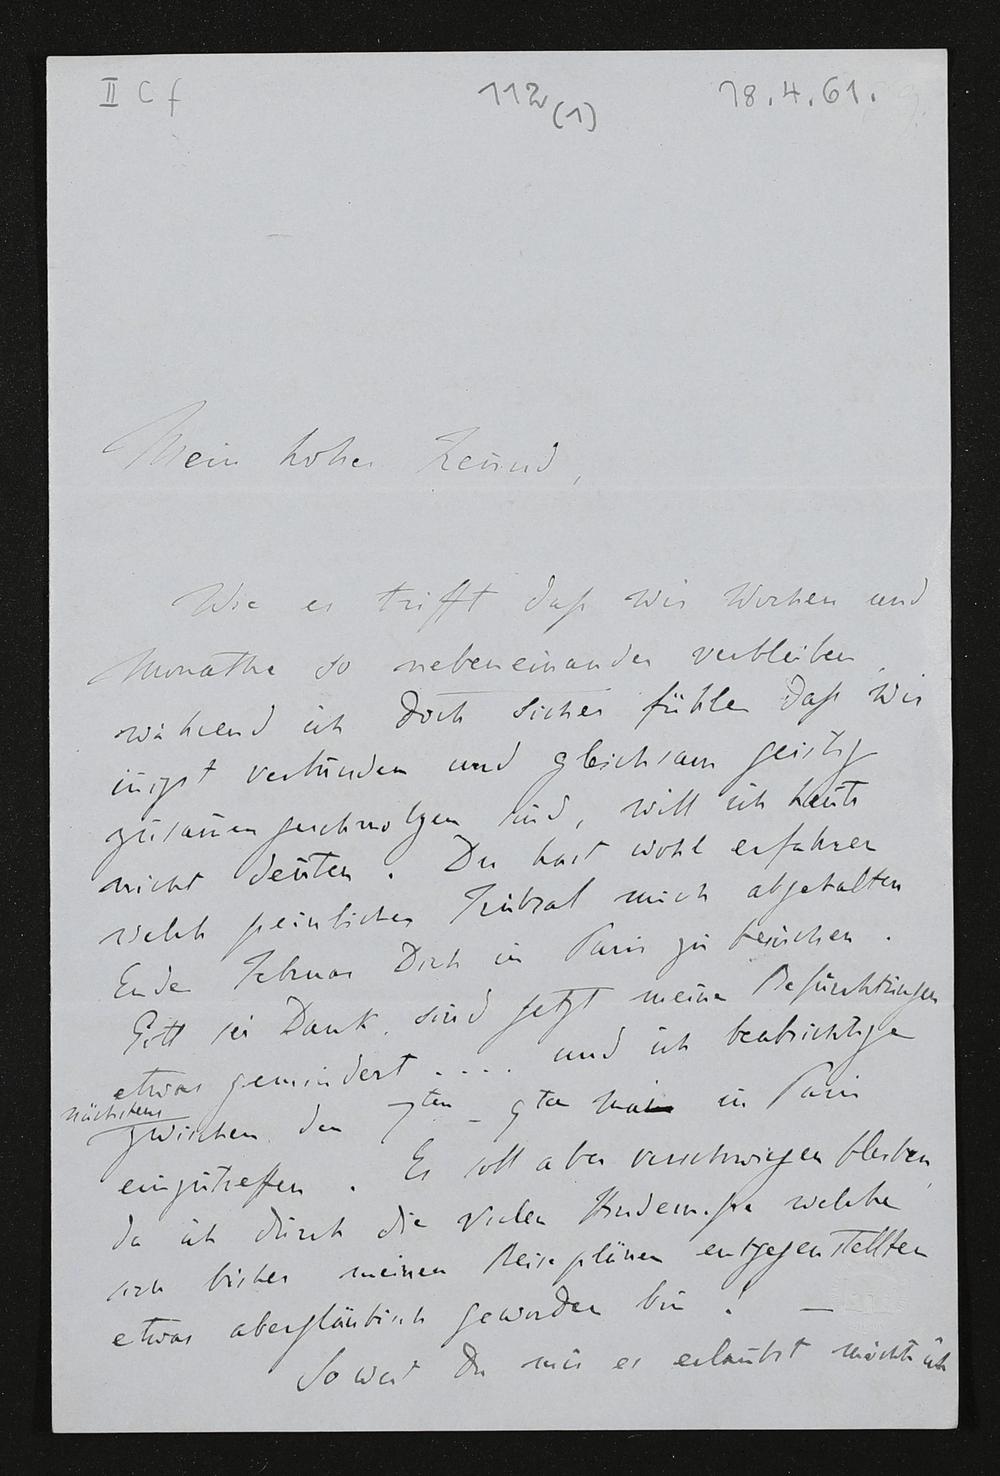 II C f 112 (1) 18.4.61.
Mein hoher Freund,
Wie es trifft daß wir Wochen und
Monathe so nebeneinander verbleiben,
während ich doch sicher fühle daß wir
innigst verbunden und gleichsam geistig
zusammengeschmolzen sind, will ich heute
nicht deuten. Du hast wohl erfahren
welch peinliches Trübsal mich abgehalten
Ende Februar Dich in Paris zu besuchen.
Gott sei Dank, sind jetzt meine Befürchtungen
etwas gemindert .... und ich beabsichtige
nächstens
zwischen den 7ten – 9ten Mai in Paris
einzutreffen. Es soll aber verschwiegen bleiben,
da ich durch die vielen Hindernisse welche
sich bisher meinen Reiseplänen entgegenstellten
etwas abergläubisch geworden bin! —
So weit Du mir es erlaubst möchte ich